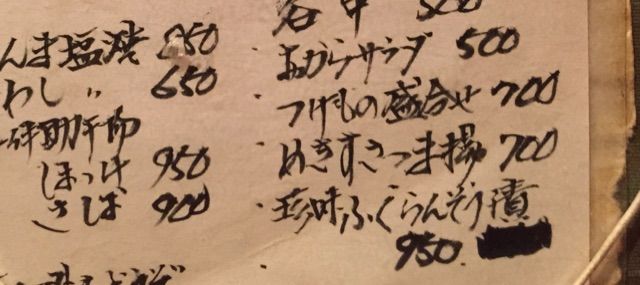 んま塩焼 850
わし 〃 650
ほっけ 950
さば 900
谷中 500
おからサラダ 500
つけもの盛合せ 700
めぎすさつま揚 700
珍味ふぐらんそう漬
950